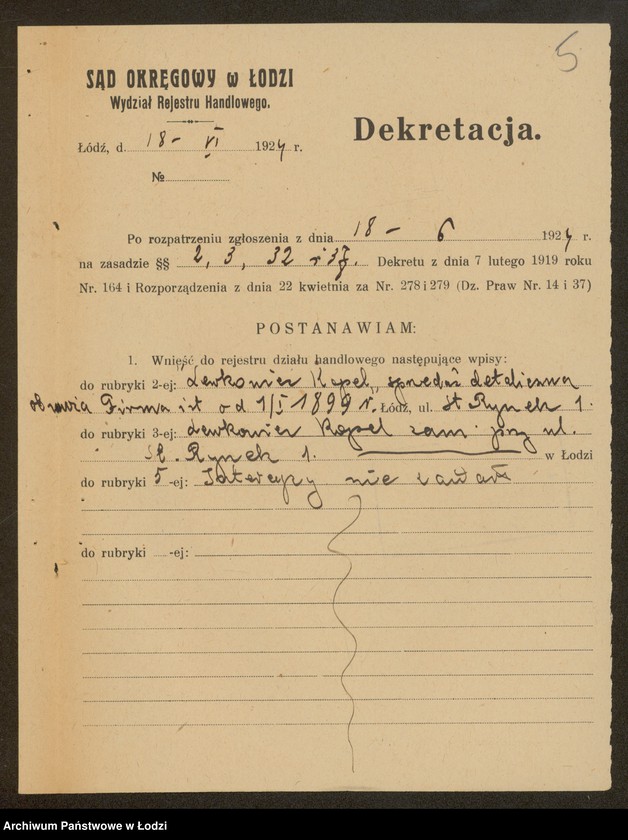 5
SĄD OKRĘGOWY w ŁODZI
Wydział Rejestru Handlowego.
Dekretacja.
Łódź, d. 18 - VI 1924 r.
№
Po rozpatrzeniu zgłoszenia z dnia 18 - 6 1924 r.
na zasadzie §§ 2, 3, 32 i 37. Dekretu z dnia 7 lutego 1919 roku
Nr. 164 i Rozporządzenia z dnia 22 kwietnia za Nr. 278 i 279 (Dz. Praw Nr. 14 i 37)
POSTANAWIAM:
1. Wnieść do rejestru działu handlowego następujące wpisy:
do rubryki 2-ej: Lewkowicz Kopel, sprzedaż detaliczna
obuwia Firma ist od 1/I 1899 r. Łódź, ul. St Rynek 1.
do rubryki 3-ej: Lewkowicz Kopel zam. przy ul.
St. Rynek 1. w Łodzi
do rubryki 5-ej: Intercyzy nie zawarł
do rubryki -ej:
Archiwum Państwowe w Łodzi